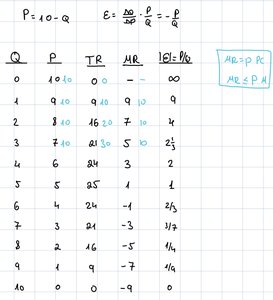 P = 10 - Q    ε = ΔQ/ΔP · P/Q = - P/Q
Q P TR MR |ε| = P/Q
0 10 10 0 0 - - ∞
1 9 10 9 10 9 10 9
2 8 10 16 20 7 10 4
3 7 10 21 30 5 10 2 1/3
4 6 24 3 2
5 5 25 1 1
6 4 24 -1 2/3
7 3 21 -3 3/7
8 2 16 -5 1/4
9 1 9 -7 1/9
10 0 0 -9 0
MR = P PC
MR ≤ P M